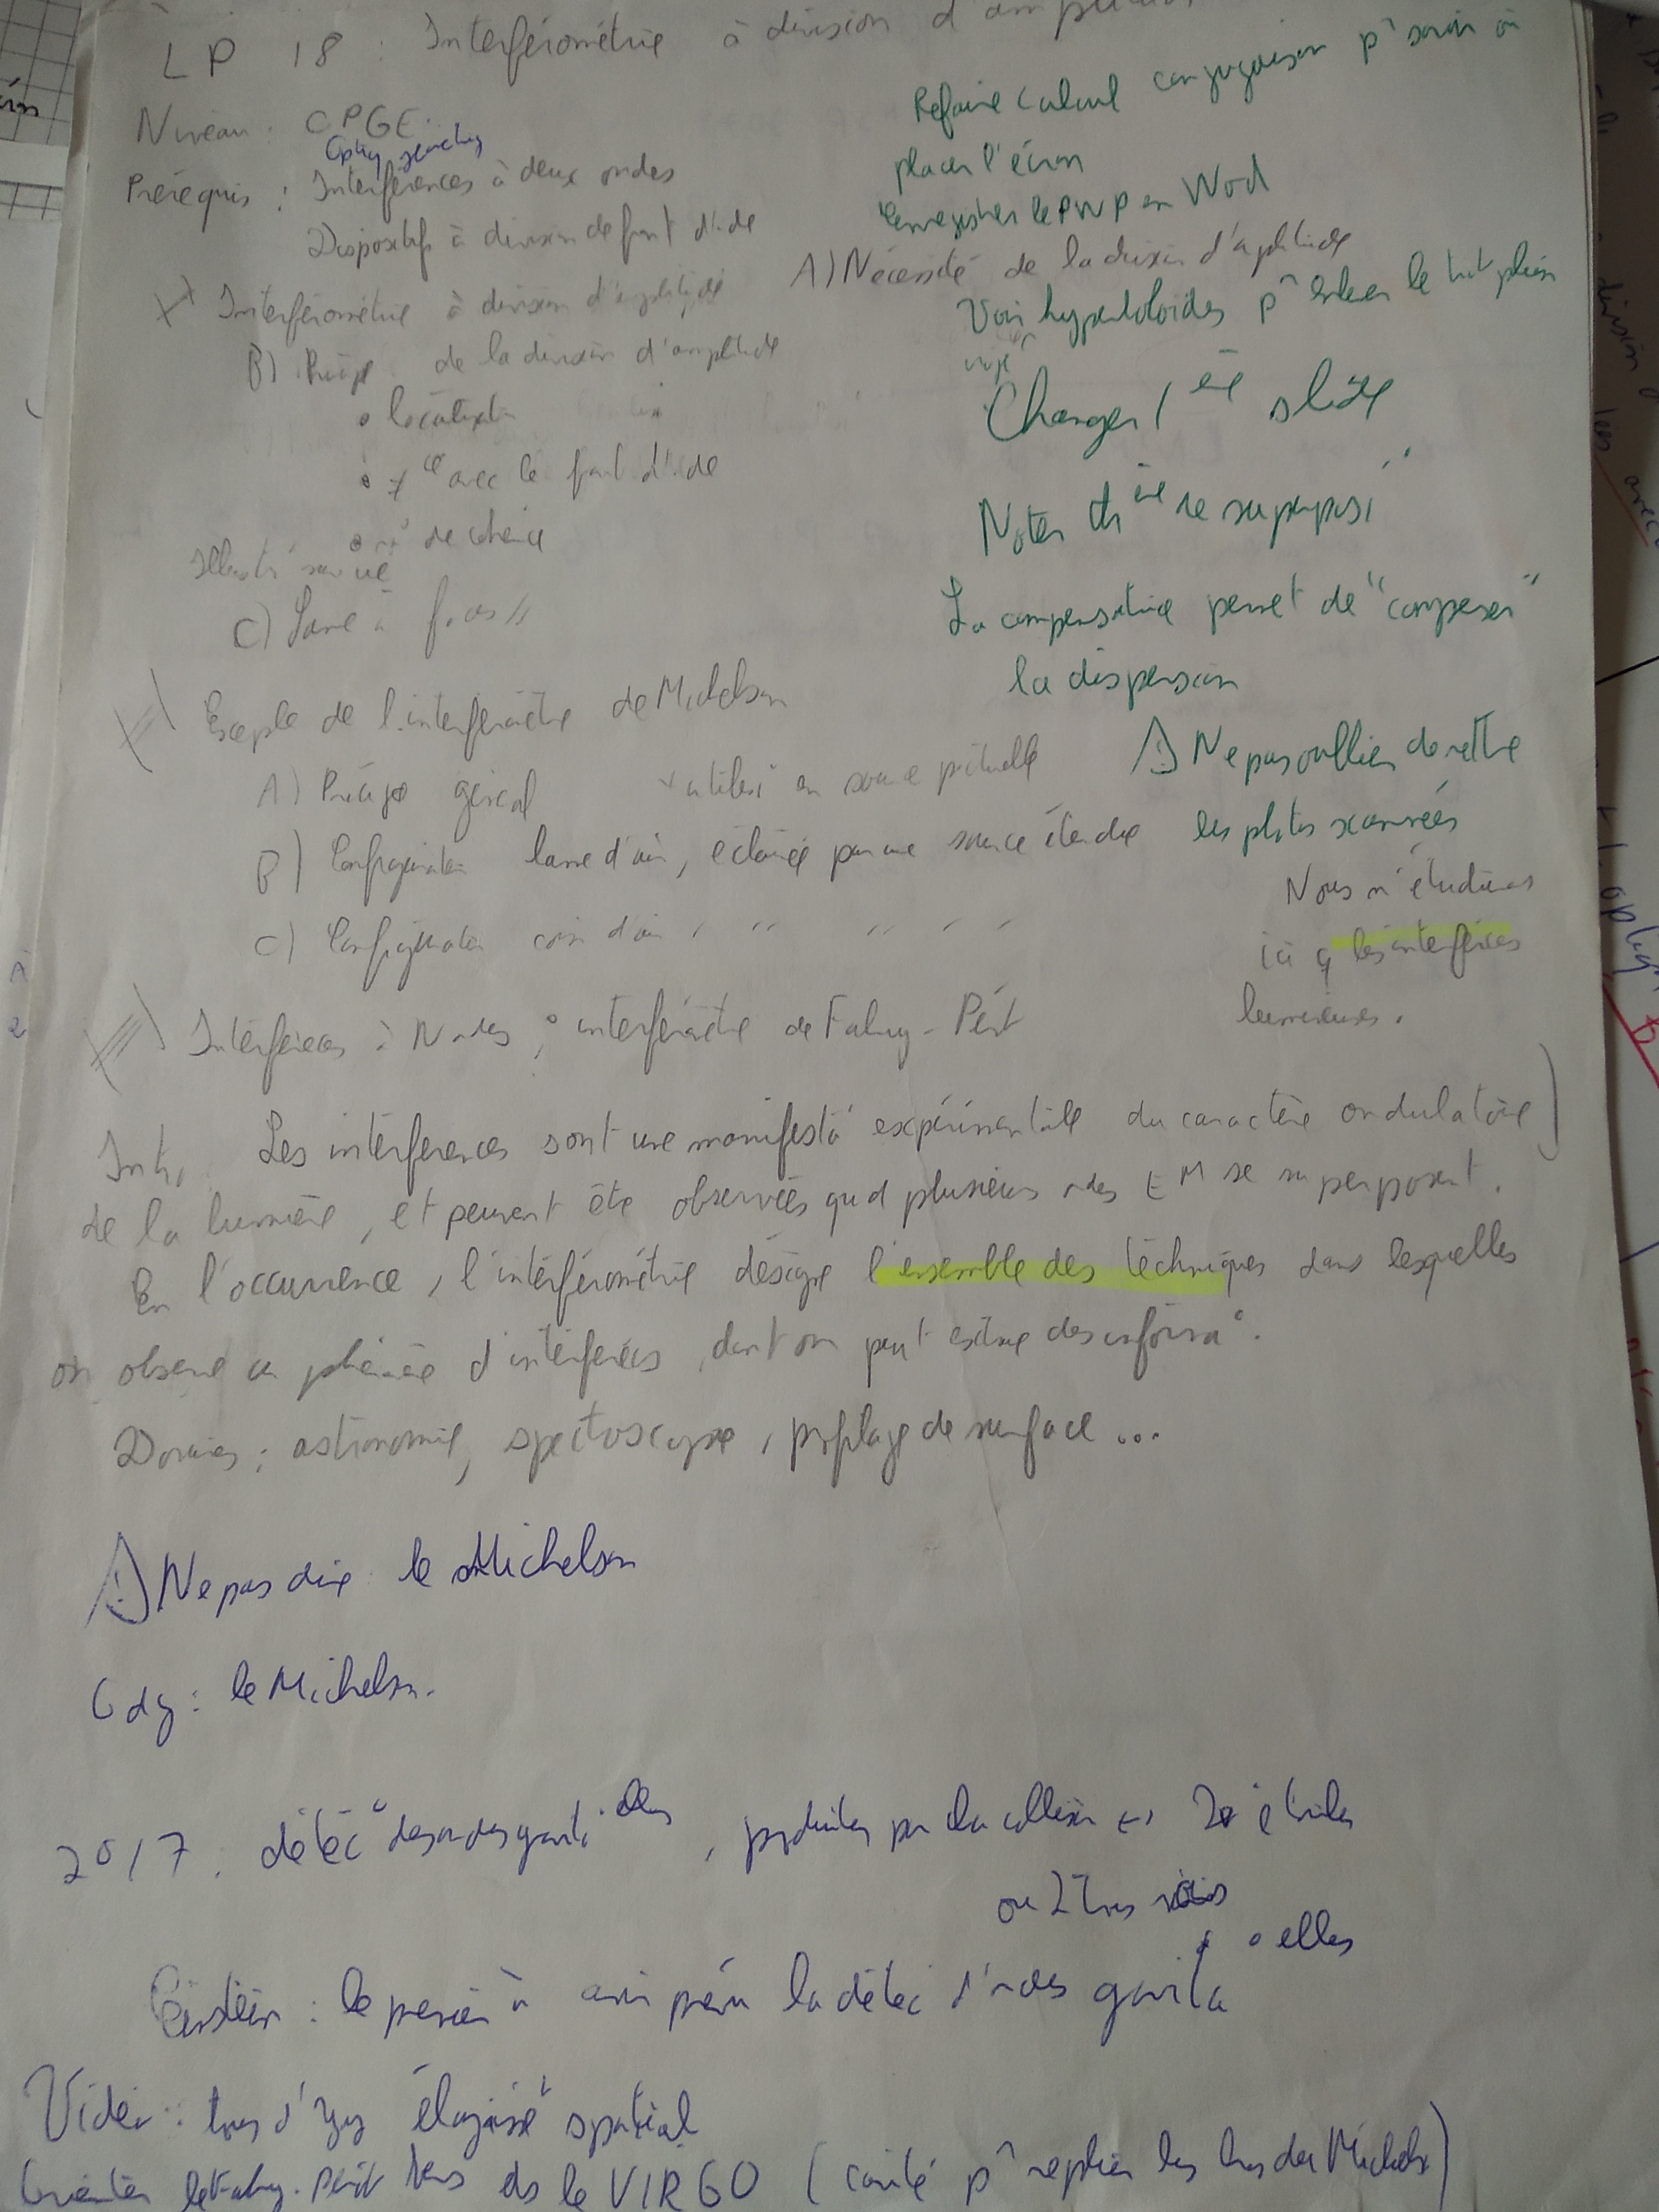 LP 18 : Interférométrie à division d'amplitude
Niveau : CPGE
Optiq géométriq
Prérequis : Interférences à deux ondes
Dispositifs à division de front d'onde
I) Interférométrie à division d'amplitude
A) Nécessité de la division d'amplitude
B) Principe de la division d'amplitude
• localisat°
• ≠ce avec le front d'onde
de cohérence
Illustré sur
C) Lame à faces //
II) Exemple de l'interféromètre de Michelson
A) Principe général + utilisé en source ponctuelle
B) Configuration lame d'air, éclairée par une source étendue
C) Configuration coin d'air, " " " "
III) Interférences à N ondes : interféromètre de Fabry-Pérot
Refaire calcul conjugaison pr savoir où
placer l'écran
Enregistrer le PWP en Word
Voir hyperboloïdes pr
Changer 1ère slide
Noter
La compensatrice permet de "compenser"
la dispersion
⚠ Ne pas oublier de mettre
les photos scannées
Nous n'étudierons
ici q les interférences
lumineuses.
Intro Les interférences sont une manifesta° expérimentale du caractère ondulatoire
de la lumière, et peuvent être observées quand plusieurs ondes EM se superposent.
En l'occurrence, l'interférométrie désigne l'ensemble des techniques dans lesquelles
on observe un phénomène d'interférences, dont on peut extraire des informa°.
Domaines : astronomie, spectroscopie, profilage de surface...
⚠ Ne pas dire le Michelson
Gdg : le Michelson.
2017 : détec° des ondes gravita°elles, produites par la collision 2 étoiles
ou 2 trous noirs
Einstein : le premier à avoir prévu la détec° d'ondes gravita°elles
Vidéo : trous d'Yg élargisst spatial
le Fabry-Pérot ds le VIRGO (cavité pr replier les bras des Michelson)